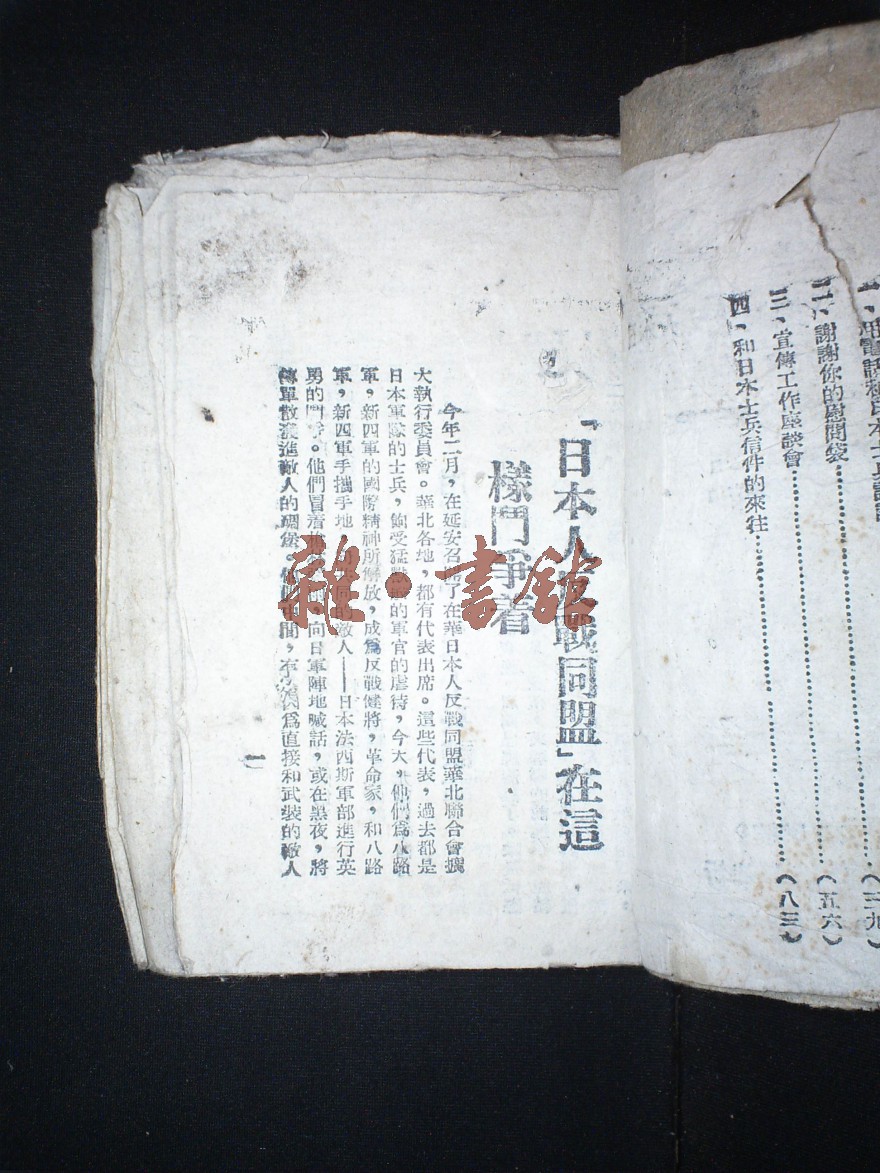 一、用電話和日本士兵談話
(三九)
二、謝謝你的慰問袋………………(五六)
三、宣傳工作座談會………………(八三)
四、和日本士兵信件的來往………………
「日本人反戰同盟」在這
樣鬥爭着
今年二月,在延安召開了在華日本人反戰同盟華北聯合會擴
大執行委員會。華北各地,都有代表出席。這些代表,過去都是
日本軍隊的士兵,飽受猛獸般的軍官的虐待,今天,他們爲八路
軍,新四軍的國際精神所解放,成爲反戰健將,革命家,和八路
軍,新四軍手攜手地 同的敵人——日本法西斯軍部進行英
勇的鬥爭。他們冒着 向日軍陣地喊話,或在黑夜,將
傳單散發進敵人的碉堡。他們中間,有 爲直接和武裝的敵人
一
雜·書館